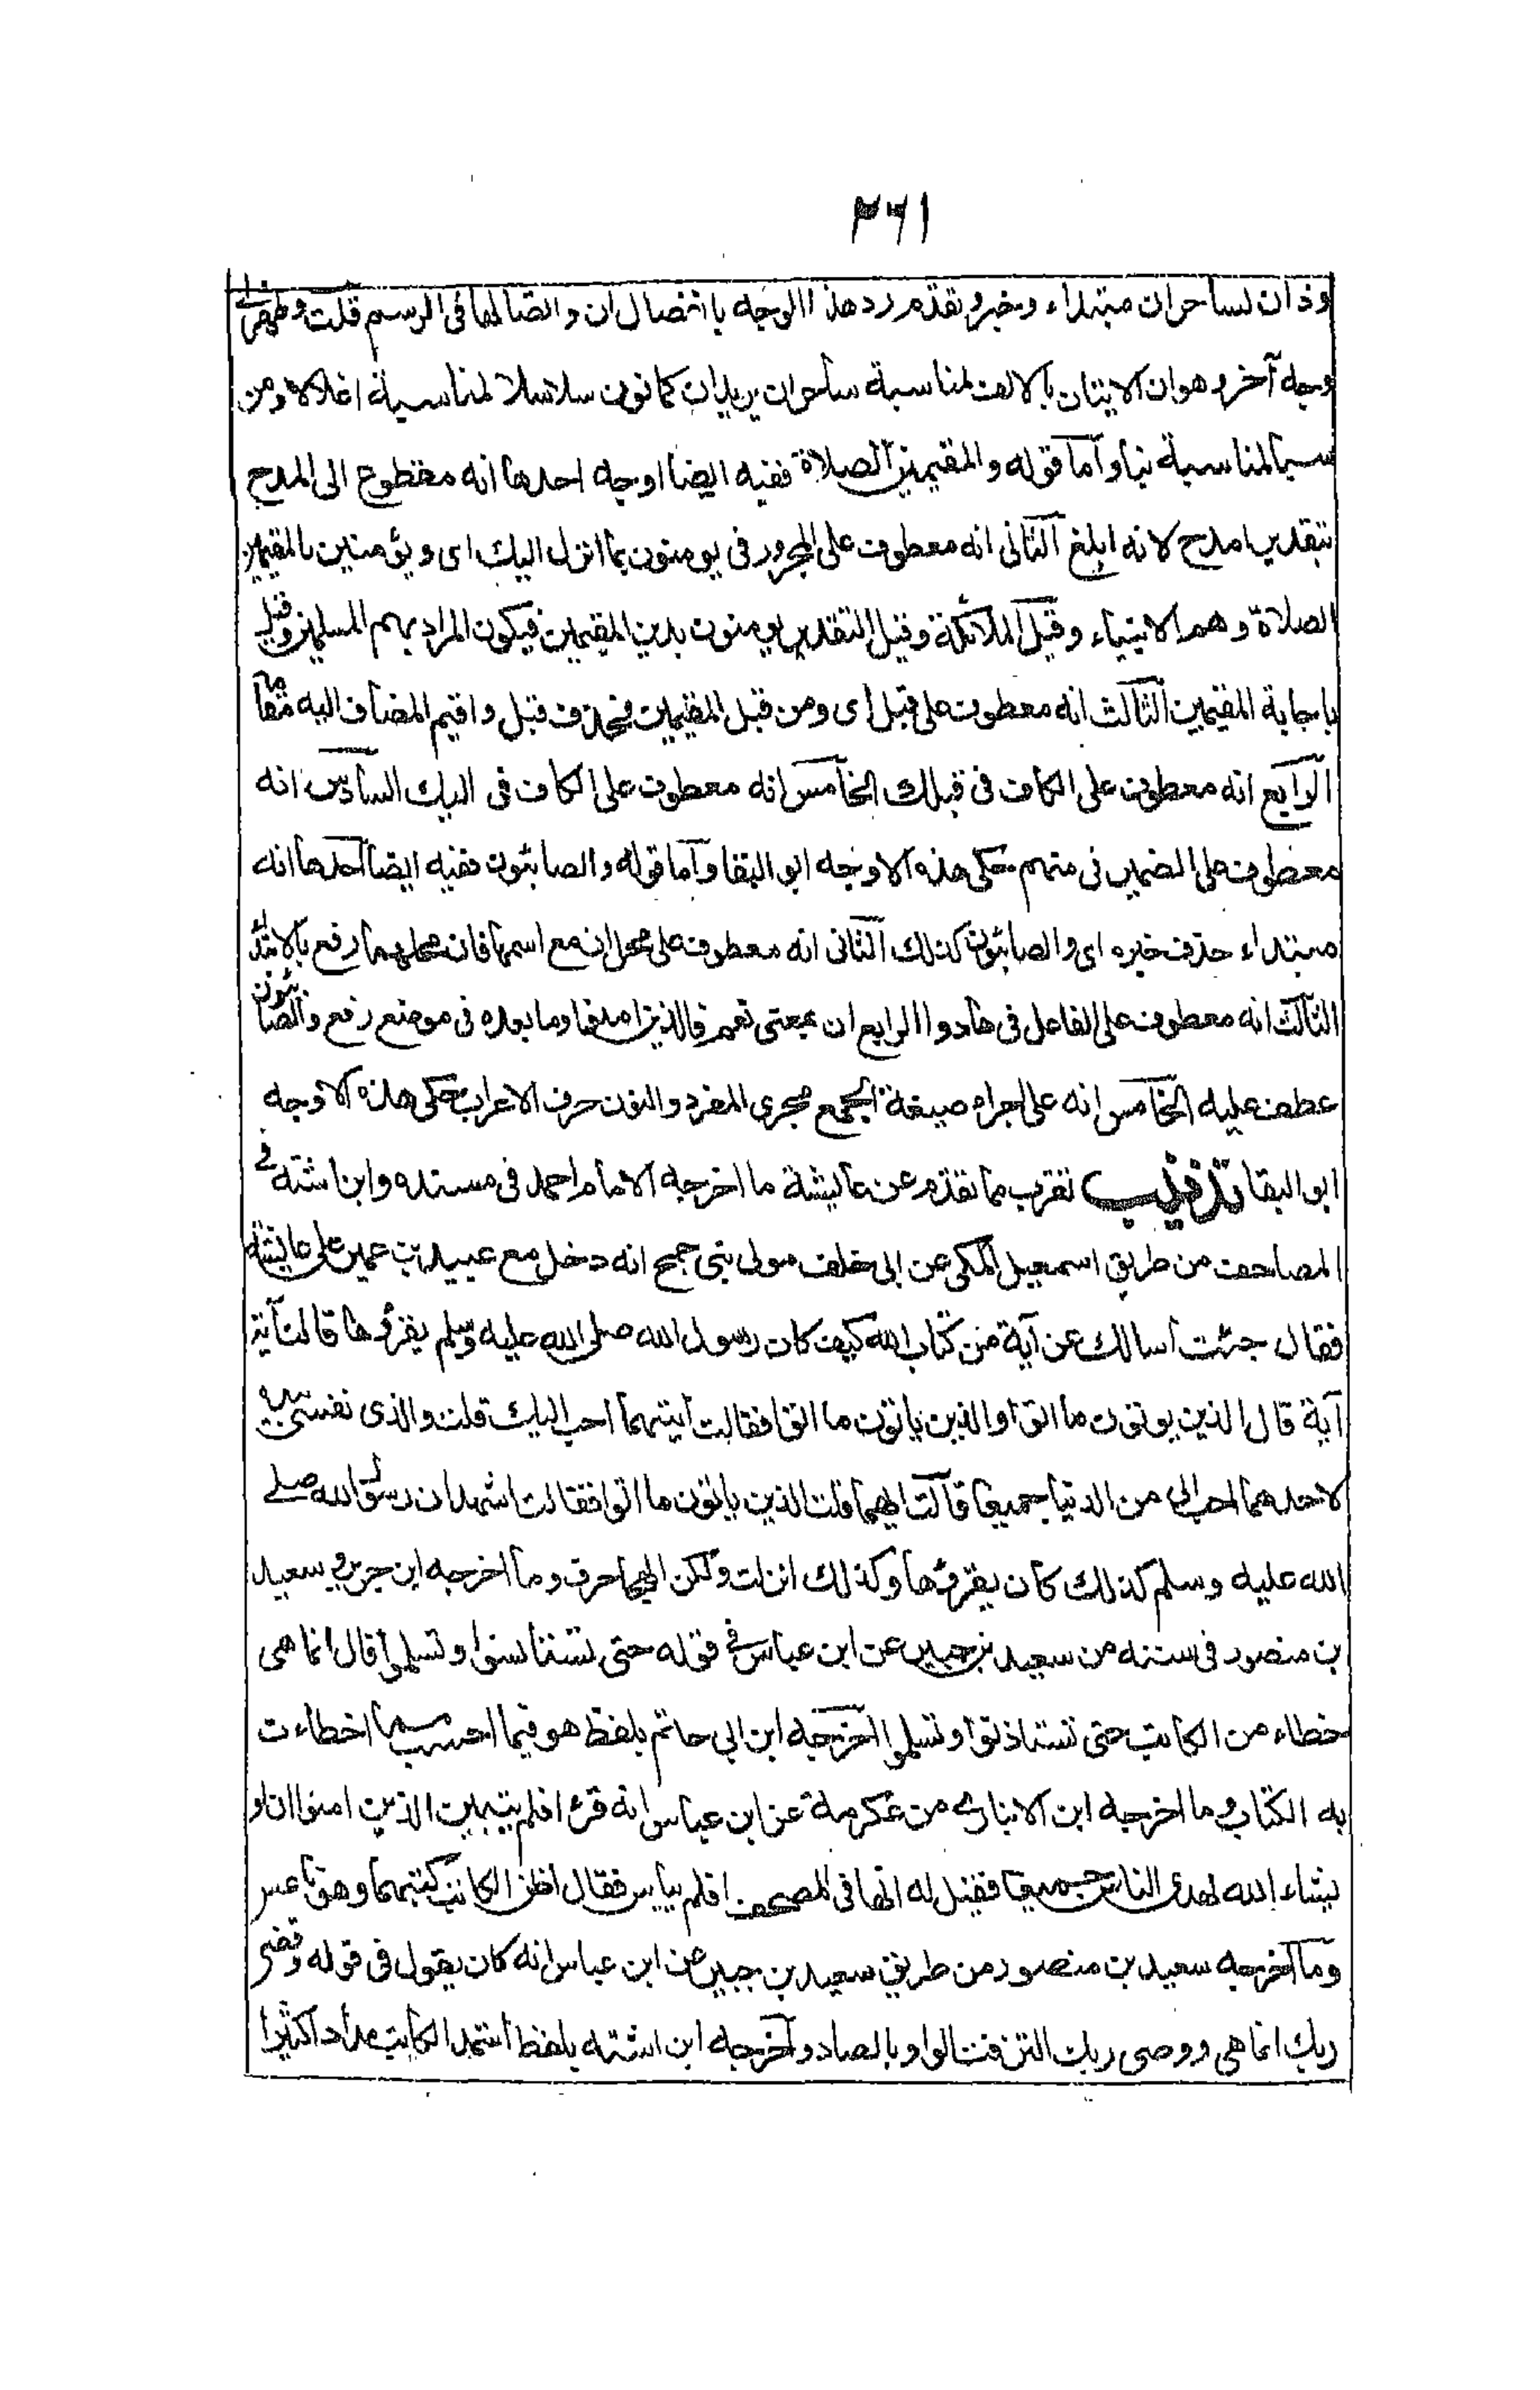 ٣٦١
وذان لساحران مبتداء وخبر وتقدم رد هذا الوجه بانفصال ان واتصالها فى الرسم قلت وظهر لى
وجه آخر وهو ان الاتيان بالالف لمناسبة ساحران يريدان كما نون سلاسلا لمناسبة اغلالا ومن
سبأ لمناسبة نبأ وأما قوله والمقيمين الصلاة ففيه ايضا اوجه احدها انه مقطوع الى المدح
بتقدير امدح لانه ابلغ الثانى انه معطوف على المجرور فى يومنون بما انزل اليك اى ويؤمنين بالمقيمين
الصلاة وهم الانبياء وقيل الملائكة وقيل التقدير يومنون بدين المقيمين فيكون المراد بهم المسلمين وقيل
باجابة المقيمين الثالث انه معطوف على قبل اى ومن قبل المقيمين فحذف قبل واقيم المضاف اليه مقامه
الرابع انه معطوف على الكاف فى قبلك الخامس انه معطوف على الكاف فى اليك السادس انه
معطوف على الضمير فى منهم حكى هذه الاوجه ابو البقا وأما قوله والصابئون ففيه ايضا احدها انه
مبتداء حذف خبره اى والصابئون كذلك الثانى انه معطوف على محل ان مع اسمها فان محلهما رفع بالابتداء
الثالث انه معطوف على الفاعل فى هادوا الرابع ان بمعنى نعم فالذين امنوا وما بعده فى موضع رفع والصابئون
عطف عليه الخامس انه على اجراء صيغة الجمع مجرى المفرد والنون حرف الاعراب حكى هذه الاوجه
ابو البقا تذنيب تقرب مما تقدم عن عايشة ما اخرجه الامام احمد فى مسنده وابن اشته فى
المصاحف من طريق اسمعيل المكى عن ابى خلف مولى بنى جمح انه دخل مع عبيد بن عمير على عايشة
فقال جئت اسالك عن آية من كتاب الله كيف كان رسول الله صلى الله عليه وسلم يقرؤها قالت آية
آية قال الذين يوتون ما اتوا والذين ياتون ما اتوا فقالت ايتهما احب اليك قلت والذى نفسى بيده
لاحدهما احب الى من الدنيا جميعا قالت ايهما قلت الذين ياتون ما اتوا فقالت اشهد ان رسول الله صلى
الله عليه وسلم كذلك كان يقرؤها وكذلك انزلت ولكن الهجا حرف وما اخرجه ابن جرير وسعيد
بن منصور فى سننه من سعيد بن جبير عن ابن عباس فى قوله حتى تستانسوا وتسلموا قال انما هى
خطاء من الكاتب حتى تستاذنوا وتسلموا اخرجه ابن ابى حاتم بلفظ هو فيما احسب مما اخطاءت
به الكتاب وما اخرجه ابن الانبارى من عكرمة عن ابن عباس انه قرء افلم يتبين الذين امنوا ان لو
يشاء الله لهدى الناس جميعا فقيل له انها فى المصحف افلم ييايس فقال اظن الكاتب كتبهما وهو ناعس
وما اخرجه سعيد بن منصور من طريق سعيد بن جبير عن ابن عباس انه كان يقول فى قوله وقضى
ربك انما هى ووصى ربك التزقت الواو بالصاد واخرجه ابن اشته بلفظ استمد الكاتب مدادا كثيرا